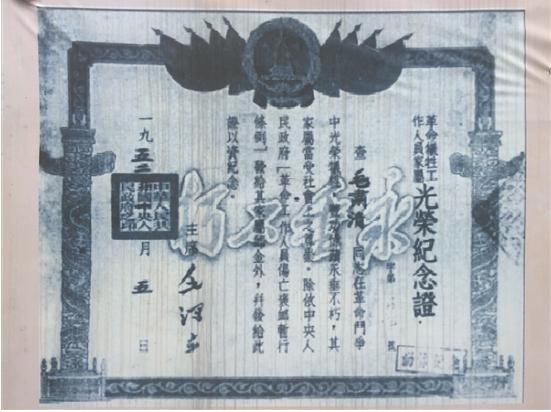 革命犧牲工
作人員家屬
光榮紀念證
字第 號
查毛 同志在革命鬥爭
中光榮犧牲,豐功偉績永垂不朽,其
家屬當受社會上之尊崇。除依中央人
民政府「革命工作人員傷亡褒卹暫行
條例」發給其家屬卹金外,并發給此
證以資紀念。
主席 毛澤東
一九五二年 月五日
中華人民共和國中央人民政府之印
永垂不朽